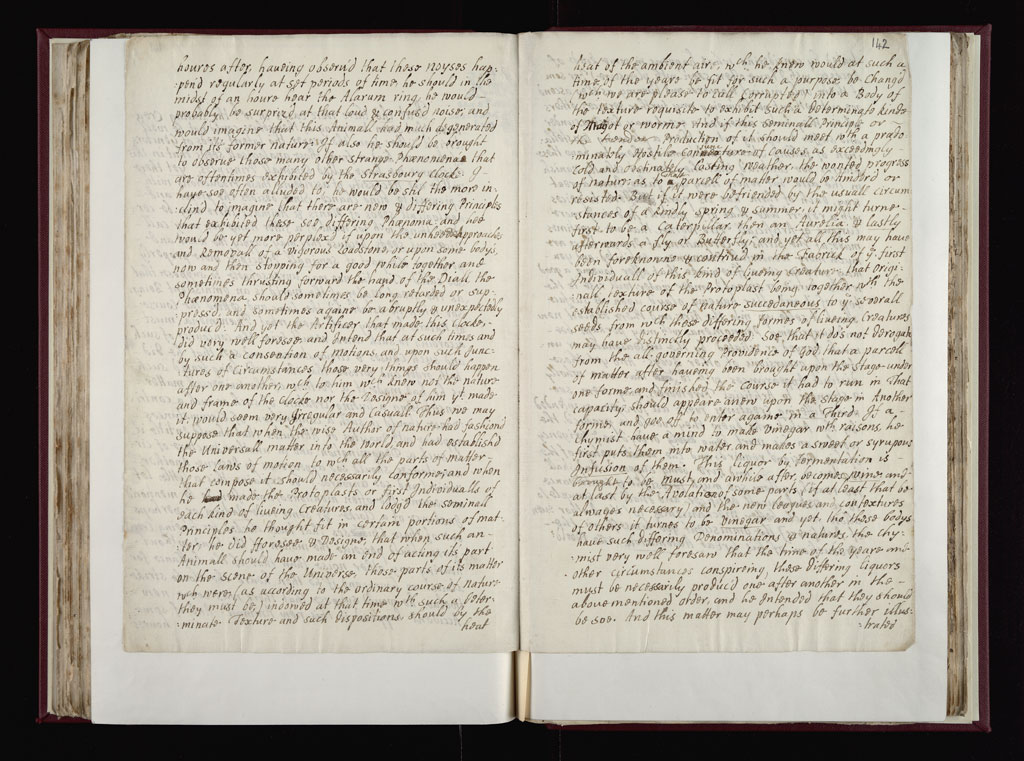 houres after, haueing observd that these noyses hap-
pend regularly at set periods of time, he should in the
midst of an houre hear the Alarum ring, he would
probably be surprized at that loud & confus'd noise, and
would imagine that this Animall had much degenerated
from its former nature: If also he should be brought
to observe those many other strange Phænomena that
are oftentimes exhibited by the Strasbourg Clocke I
haue soe often alluded to, he would be stil the more in-
clind to imagine that there are new & differing Principles
that exhibited these soe differing Phænomena: and hee
would be yet more perplexd if upon the unheeded approach
and Removall of a vigorous Loadstone, or upon some bodys
now and then stopping for a good while together, and
sometimes thrusting forward the hand of the Diall, the
Phænomena should sometimes be long retarded or sup-
press'd, and sometimes againe be abruptly & unexpectedly
produc'd: And yet the Artificer that made this Clocke
did very well foresee and Intend that at such times and
by such a consecution of motions, and upon such Junc-
tures of Circumstances, those very things should happen
after one another, wch to him wch knew not the nature
and frame of the Clocke nor the Designe of him yt. made
it, would seem very Irregular and Casuall. Thus we may
suppose that when the wise Author of nature had fashiond
the Universall matter into the World, and had establishd
those Laws of motion to wch all the parts of matter,
that compose it should necessarily conforme, and when
he made the Protoplasts or first Individualls of
each kind of liueing Creatures, and lodg'd the seminall
Principles he thought fit in certain portions of mat-
ter, he did fforesee & Designe, that when such an
Animall should haue made an end of acting its part
on the scene of the Universe, those parts of its matter
wch were, (as according to the ordinary course of nature
they must be,) indowed at that time wth such a Deter-
minate Texture and such dispositions, should by the
heat
142
heat of the ambient air, wch he knew would at such a
time of the yeare be fit for such a purpose, be chang'd
(wch we are please to call Corrupted) into a Body of
the Texture requisite to exhibit such a Determinate kinde
of Magot or worme. And if this seminall Principle or
the Production of it should meet wth a prædo-
minately Hostile Conjuncture of Causes, as exceedingly
cold and obstinately lasting weather, the wonted progress
of nature, as to such a parcell of matter would be hinderd or
resisted. But if it were befriended by the usuall Circum-
stances of a kindly spring & summer, it might turne
first to be a Caterpillar, then an Aurelia & lastly
afterwards a fly or Butterfly, and yet all this may haue
been foreknowne & contriu'd in the Fabrick of ye first
Individuall of this kind of liueing Creature, that Origi-
nall Texture of the Protoplast being together wth the
established course of nature succedaneous to ye severall
seeds from wch these differing formes of liueing Creatures
may haue distinctly proceeded. Soe that it dos not Derogate
from the all-governing Providence of God that a parcell
of matter after haueing been brought upon the Stage under
one forme, and finished the Course it had to run in That
capacity, should appeare anew upon the stage in Another
forme, and goe off to enter againe in a Third. If a
Chymist haue a mind to make vinegar wth raisons, he
first puts them into water and makes a sweet or syrupous
Infusion of them. This liquor by fermentation is
brought to be Must, and awhile after, becomes wine and
at last by the Avolation of some parts (if at least that be
alwayes necessary) and the new leagues and contextures
of others it turnes to be vinegar and yet, tho these bodys
haue such differing Denominations & natures, the Chy-
mist very well foresaw that the time of the yeare and
other circumstances conspireing, these differing liquors
must be necessarily produc'd one after another in the
abovementioned order, and he intended that they should
be soe. And this matter may perhaps be further illus-
trated